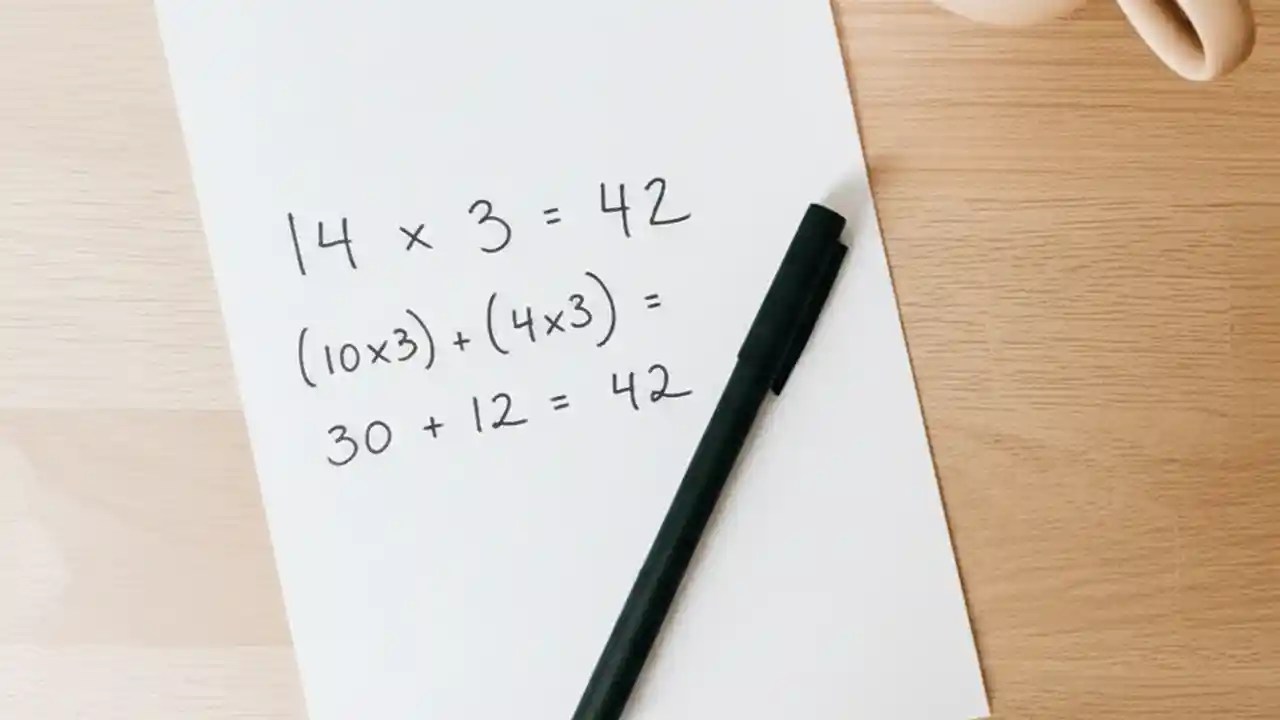 14 × 3 = 42
(10×3) + (4×3) =
30 + 12 = 42